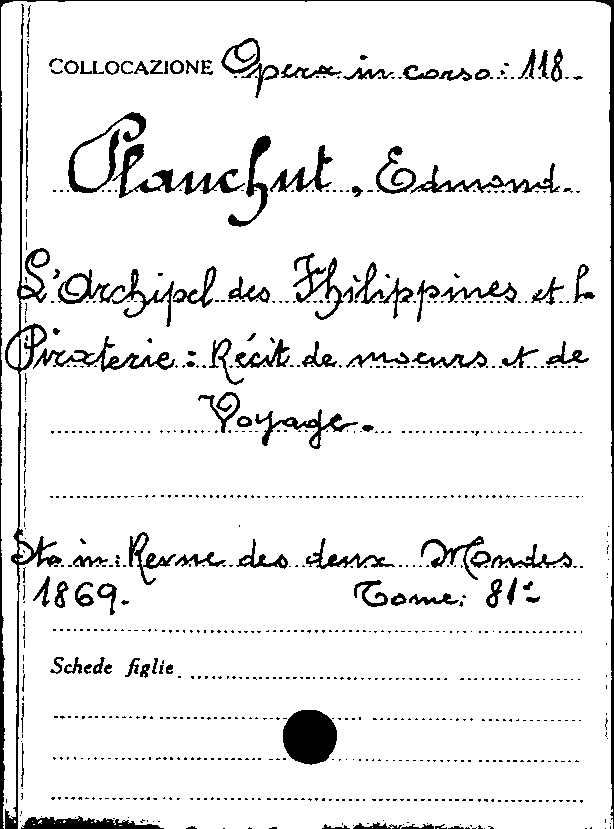 COLLOCAZIONE Opera in corso: 118.
Plauchut, Edmond.
L'Archipel des Philippines et la
Piraterie: Récit de moeurs et de
Voyage.
Sta in: Revue des deux Mondes
1869. Tome: 81º
Schede figlie